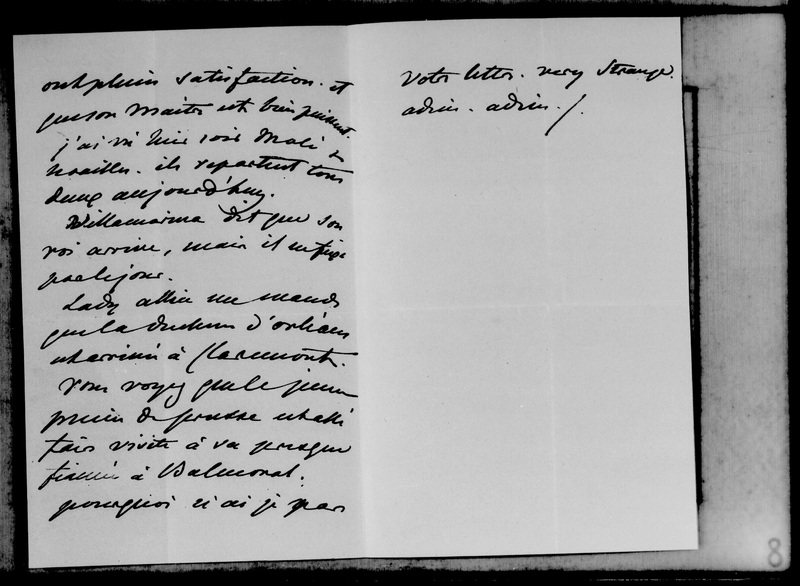 ont plein satisfaction. et
que son maitre est bien puissant.
j'ai vu hier soir Molé &
Noailles. ils repartent tous
deux aujourd'huy.
Villamarina dit que son
roi arrive, mais il ne fixe
pas le jour.
Lady Allice me mande
que la duchesse d'orléans
est arrivée à Claremont.
Vous voyez que le jeune
prince de prusse est allé
faire visite à sa presque
fiancée à Balmoral.
pourquoi n'ai je pas
votre lettre. very strange.
adieu. adieu./.
8